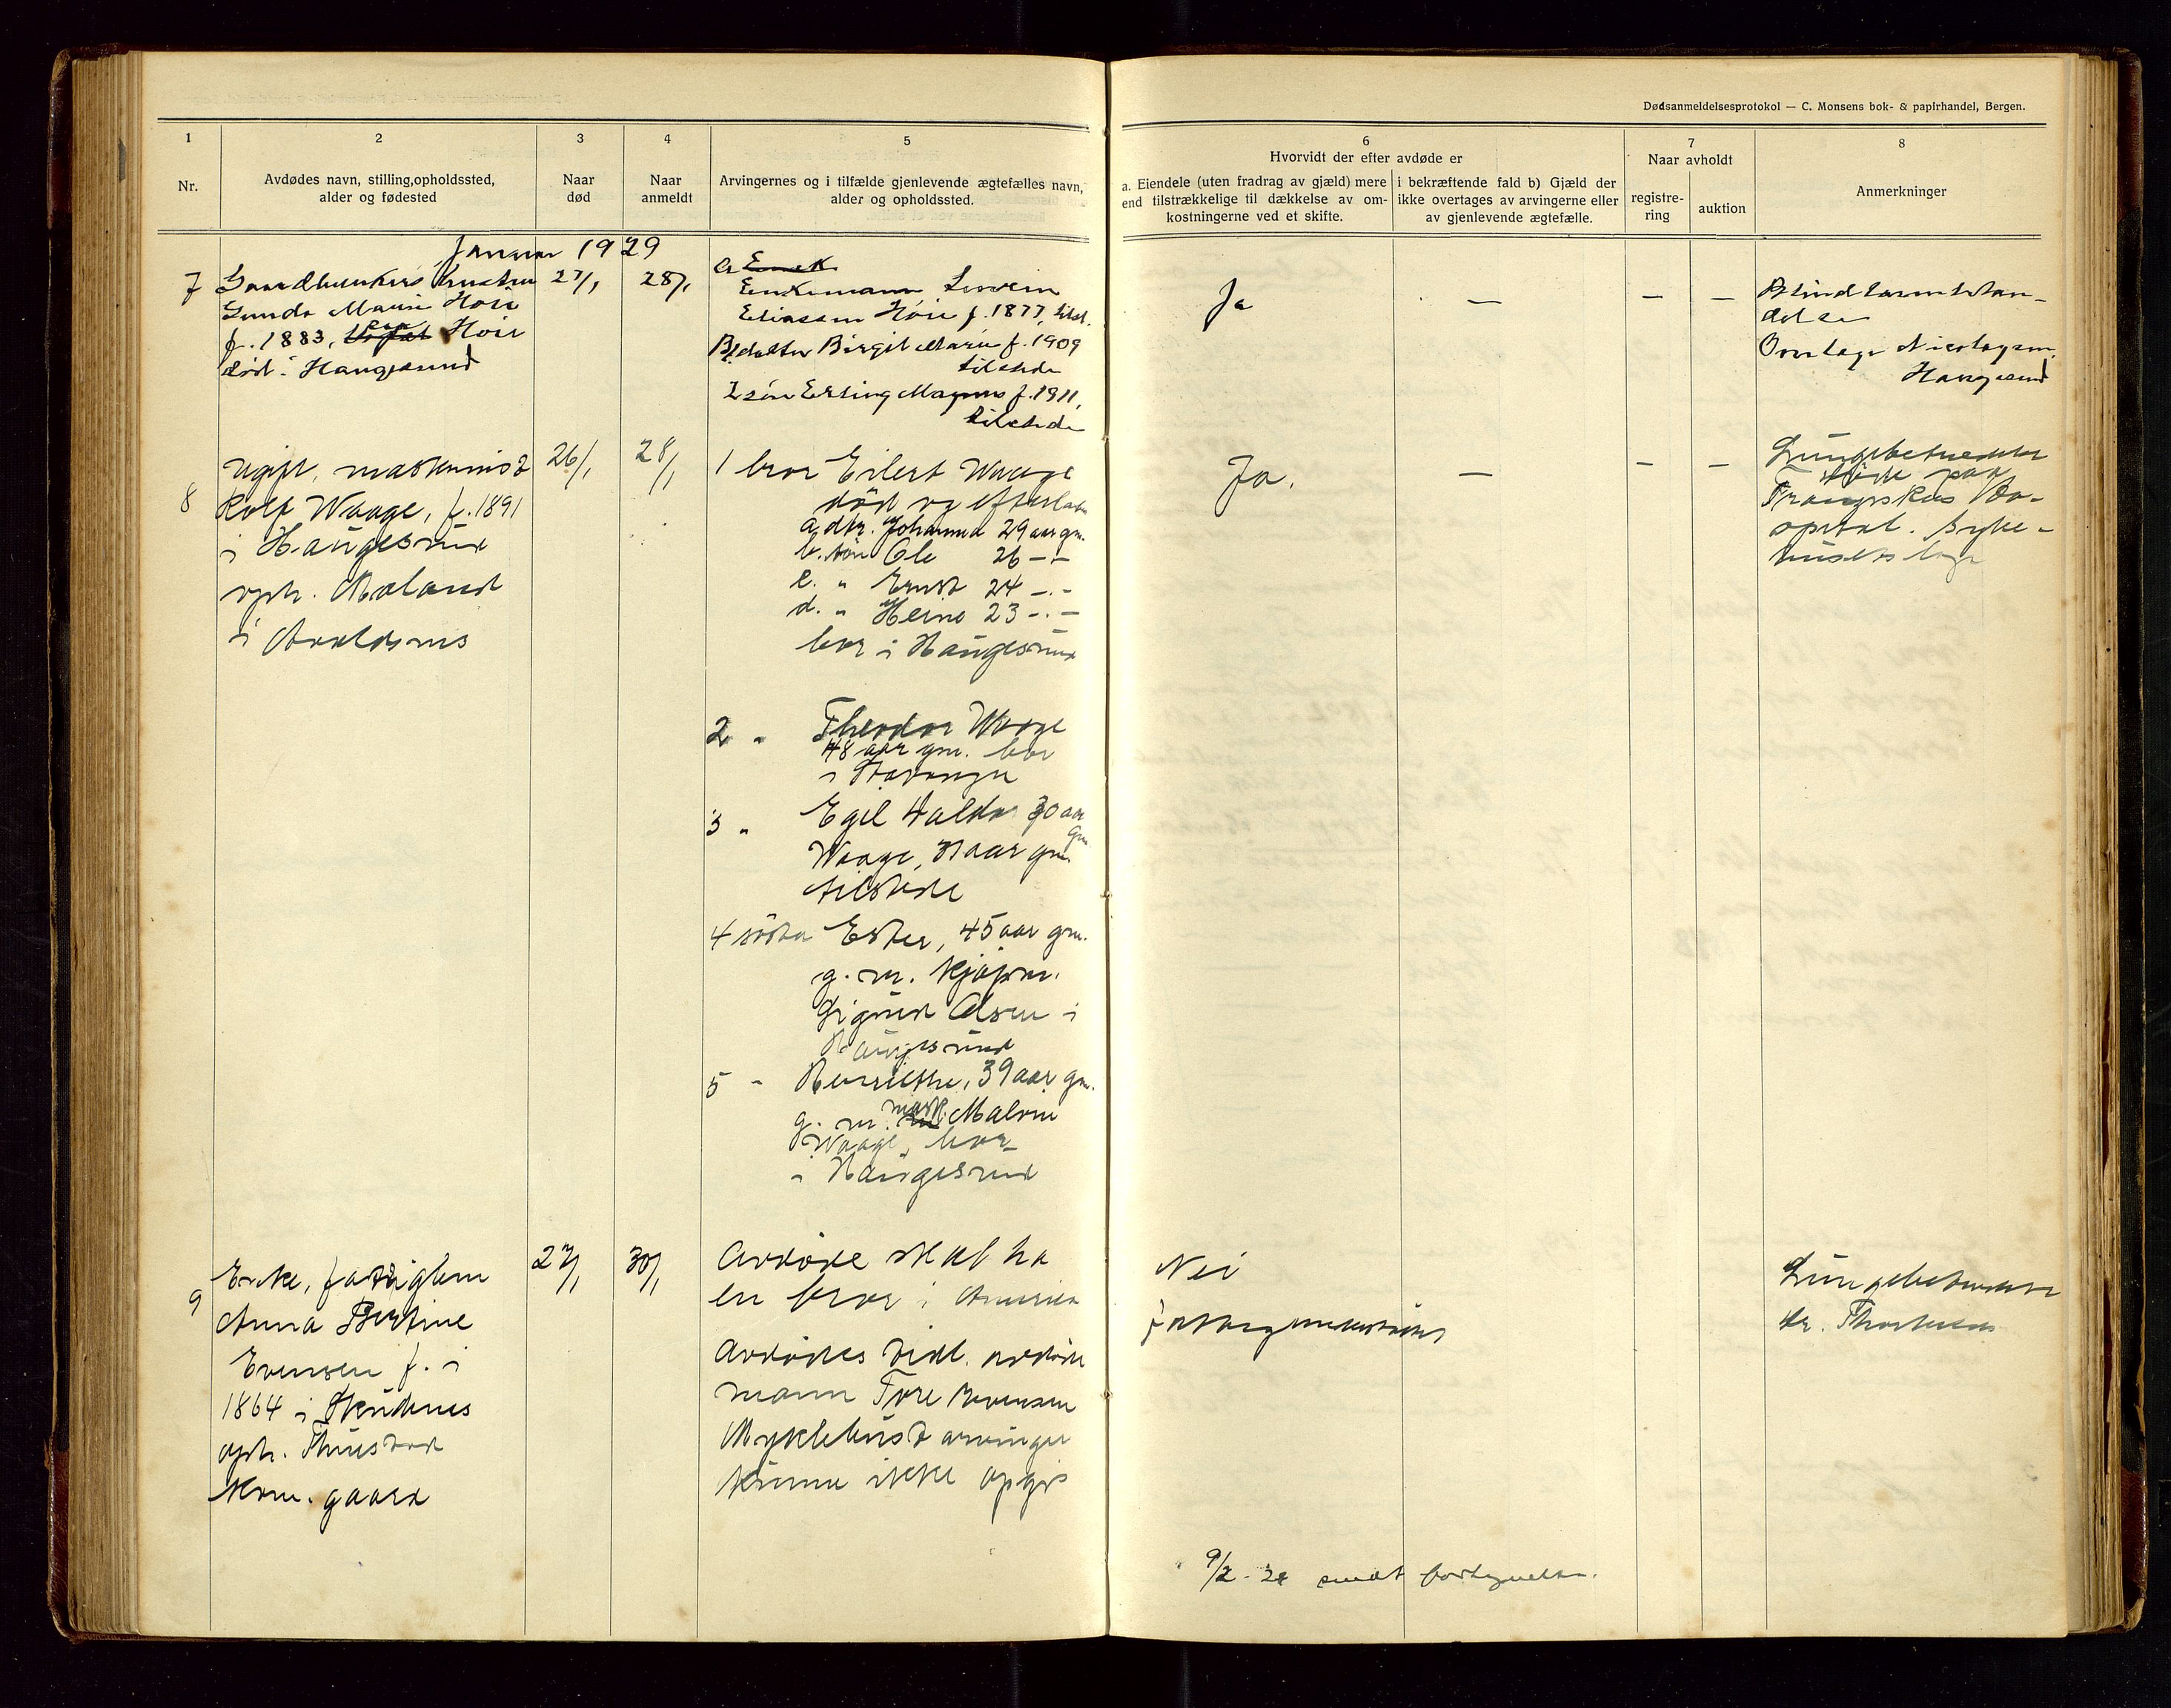 Dødsanmeldelsesprotokol — C. Monsens bok- & papirhandel, Bergen.
1
2
3
4
5
6
7
8
Nr.
Avdødes navn, stilling, opholdssted,
alder og fødested
Naar
død
Naar
anmeldt
Arvingernes og i tilfælde gjenlevende ægtefælles navn,
alder og opholdssted.
Hvorvidt der efter avdøde er
a. Eiendele (uten fradrag av gjæld) mere
end tilstrækkelige til dækkelse av om-
kostningerne ved et skifte.
i bekræftende fald b) Gjæld der
ikke overtages av arvingerne eller
av gjenlevende ægtefælle.
Naar avholdt
registre-
ring
auktion
Anmerkninger
Januar 1929
7
Gaardbrukers hustru
Gunda Marie Høie
f. 1883, Høie
død i Haugesund
27/1
28/1
a
Enkemann
Eliassen Høie f. 1877, tilst.
B1 datter Birgit Marie f. 1909
tilstede
2 søn Erling Magnus f. 1911,
tilstede
Ja
—
—
—
Blindtarmbetæn-
delse
Overlæge
Haugesund
8
Ugift, maskinist
Rolf Waage, f. 1891
i Haugesund
oph.
i Avaldsnes
26/1
28/1
1 bror Eilert Waage
død og efterlatt
a. dtr. Johanna 29 aar gm.
b. søn Ole 26 — —
c. " Ernst 24 —.—
d. " Heine 23 —.—
bor i Haugesund
2 " Theodor Waage
48 aar gm. bor
i Stavanger
3 " Egil Haldor 30 aar
gm
Waage, aar gm.
tilstede
4 søster Ester, 45 aar gm.
g. m. kjøpm.
Sigurd Olsen i
Haugesund
5 " Henriette, 39 aar gm.
g. m. mask. Malvin
Waage, bor
i Haugesund
Ja.
—
—
—
Lungebetændelse
døde paa
Franciskus Ho-
spital. Syke-
husets læge
9
Enke, fattiglem
Anna Bertine
Evensen f. i
1864 i Skudenes
oph.
Kom. gaard
27/1
30/1
Avdøde skal ha
en bror i Amerika
Avdødes tidl. avdøde
mann Tore Evensen
Myklebust arvinger
kunne ikke opgis
Nei
fattigunderstøttet
Lungebetændelse
dr.
9/2 - 29 sendt fortegnelse.